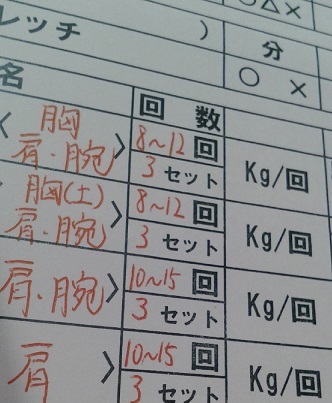 ○△×
レッチ )
分
○ ×
名 回 数
胸
肩・腕 〉
8~12 回
3 セット
Kg/回
胸(土)
肩・腕 〉
8~12 回
3 セット
Kg/回
肩・腕 〉
10~15 回
3 セット
Kg/回
肩 〉
10~15 回
3 セット
Kg/回